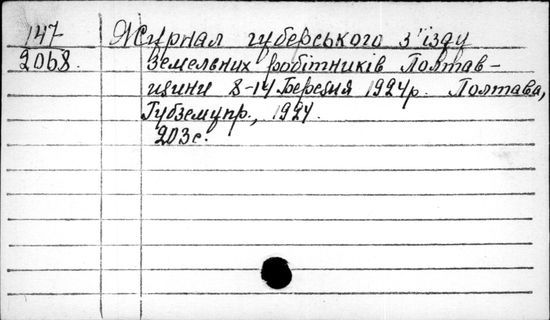 147
2068.
Журнал губерського з'їзду
земельних робітників Полтав-
щини 8-14 Березня 1924р. Полтава,
Губземупр., 1924.
203с.